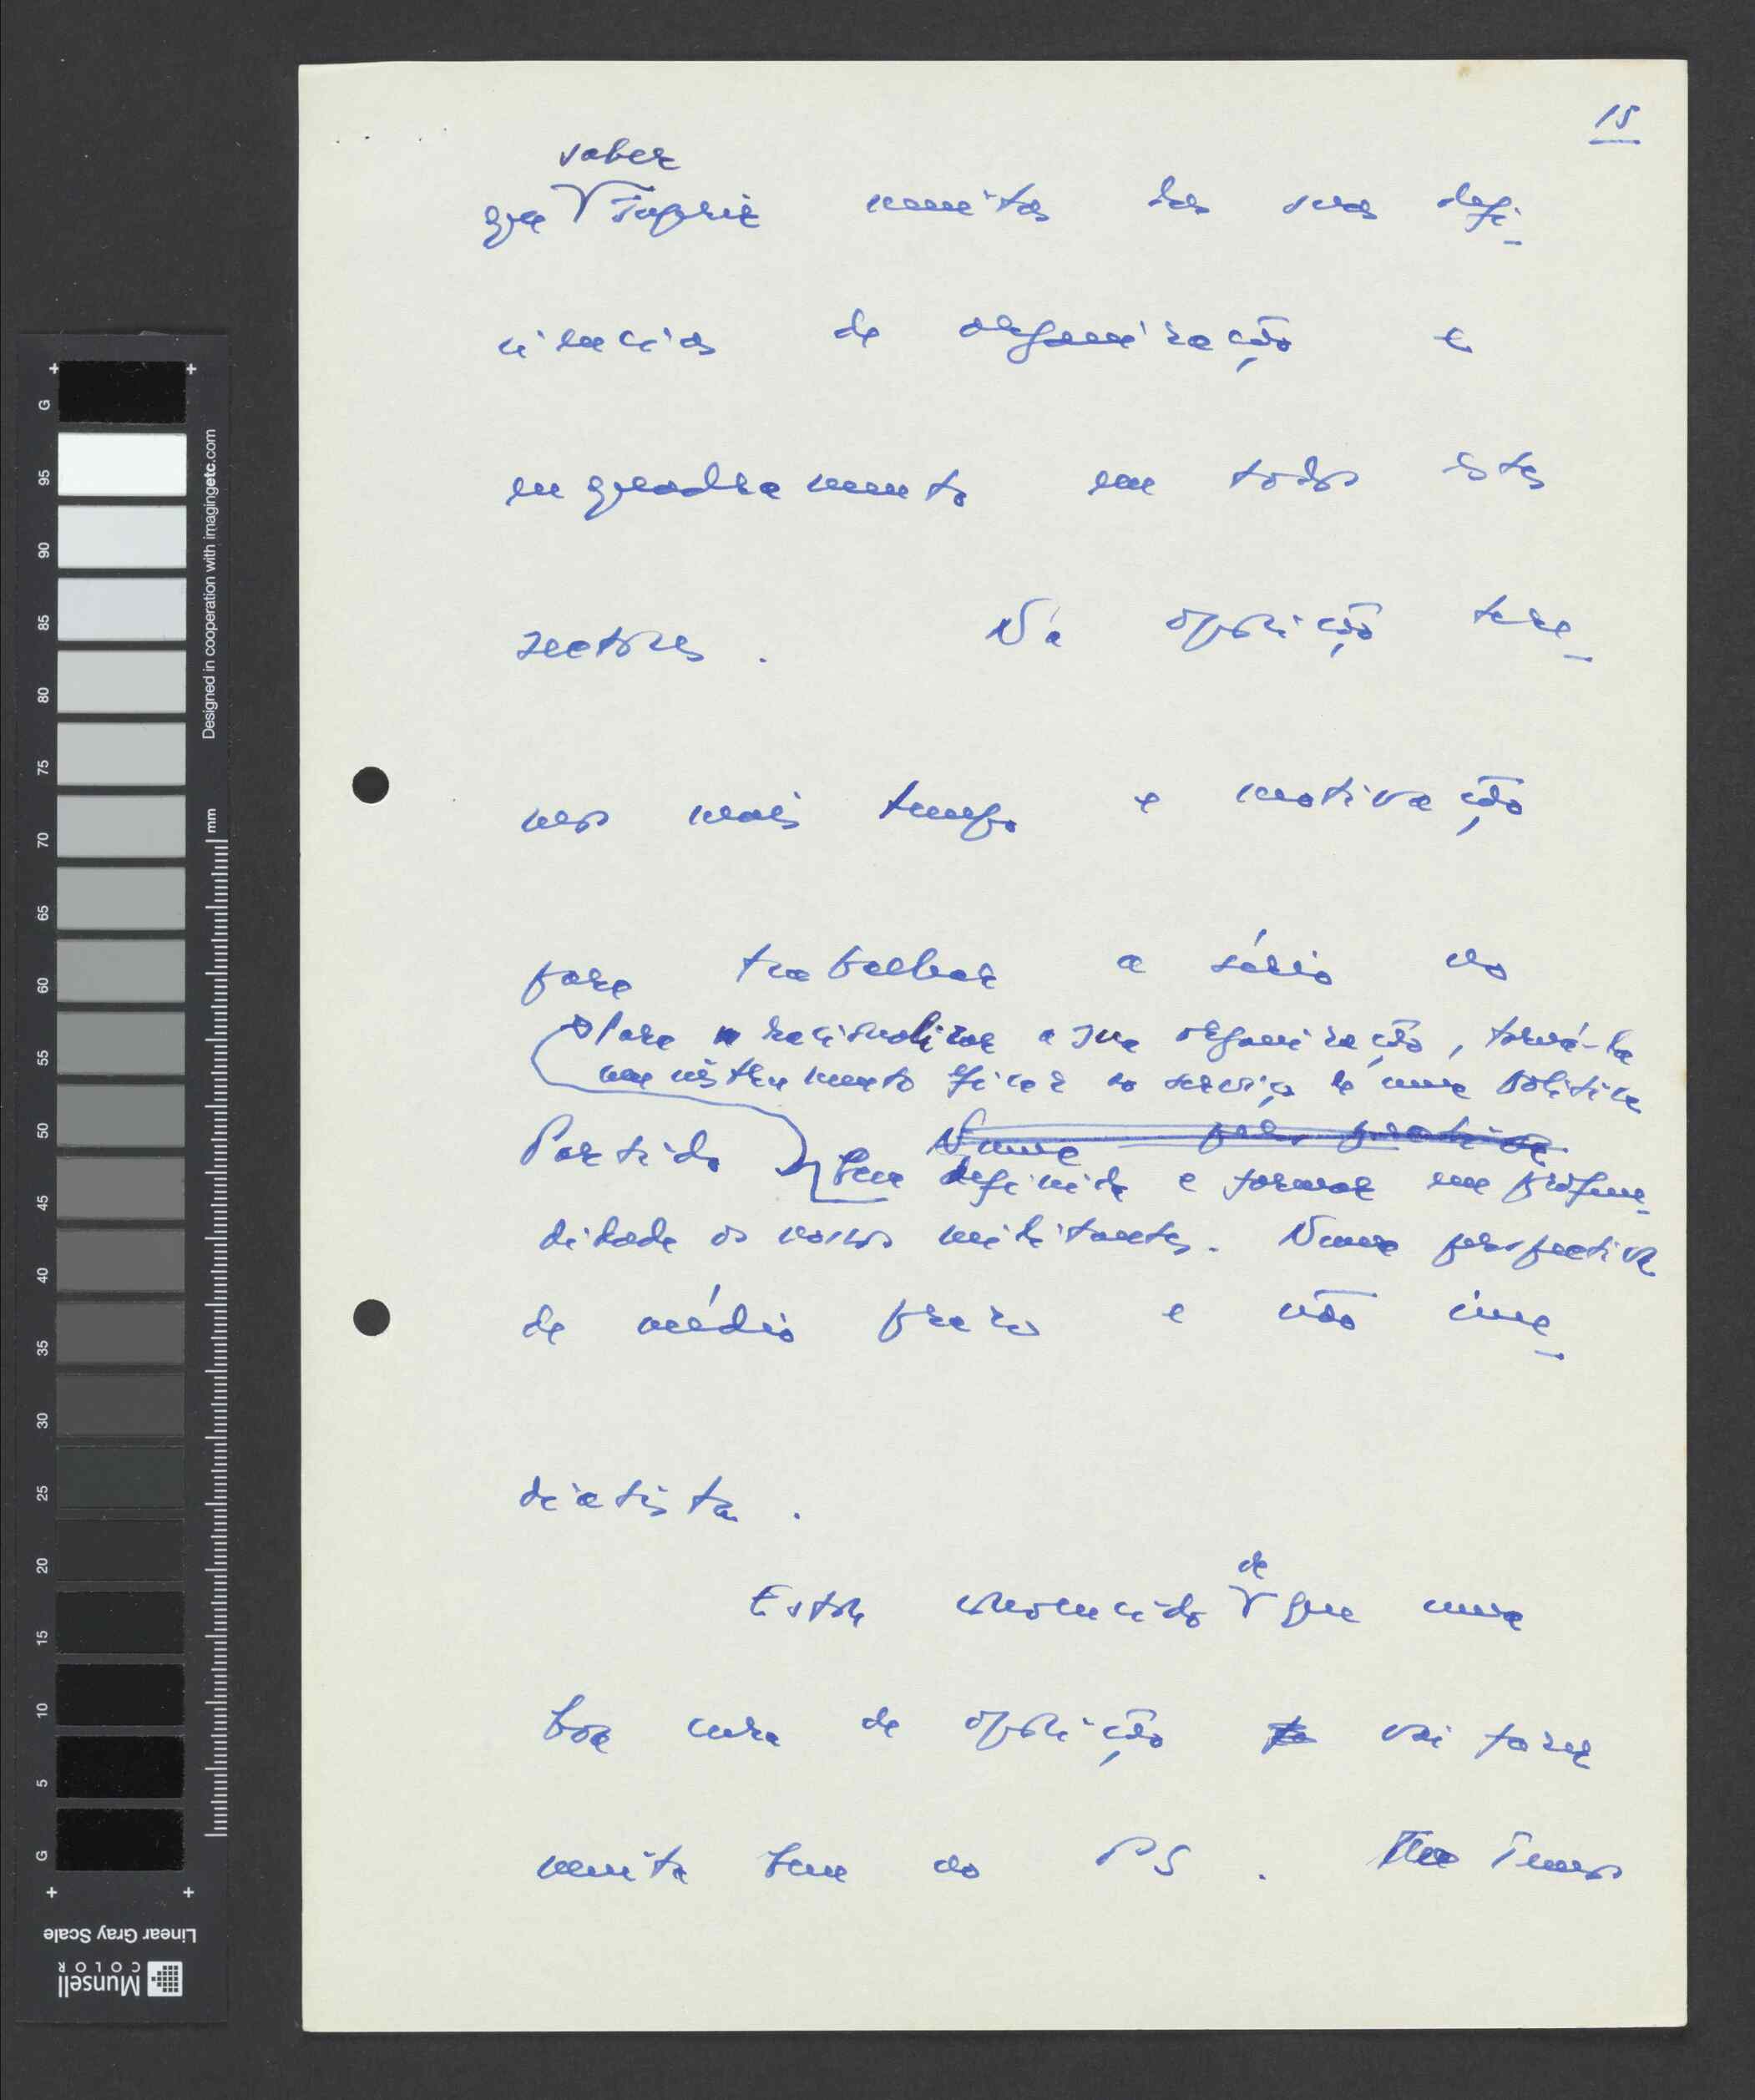 15
saber
que suprir muitas das suas defi-
ciências de organização e
enquadramento em todos estes
sectores. Na oposição tere-
mos mais tempo e motivação
para trabalhar a sério no
Para racionalizar a sua organização, torná-la
um instrumento eficaz ao serviço de uma política
Partido Numa perspectiva
bem definida e formar em profun-
didade os nossos militantes. Numa perspectiva
de médio prazo e não ime-
diatista.
de
Estou convencido que uma
boa cura de oposição vai fazer
muito bem ao PS. Temos
G
95
90
85
80
75
70
65
60
55
50
45
40
35
30
25
20
15
10
5
G
mm
Designed in cooperation with imagingetc.com
Linear Gray Scale
Munsell
COLOR